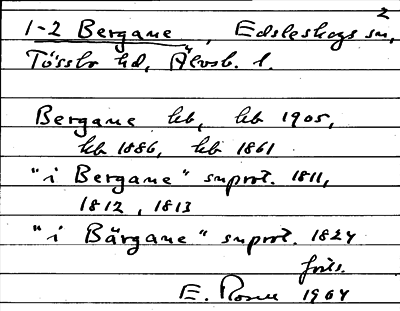 2
1-2 Bergane, Edsleskogs sn,
Tössbo hd, Älvsb. l.
Bergane kb, kb 1905,
kb 1886, kb 1861
"i Bergane" snprot. 1811,
1812, 1813
"i Bärgane" snprot. 1824
forts.
E. 1964